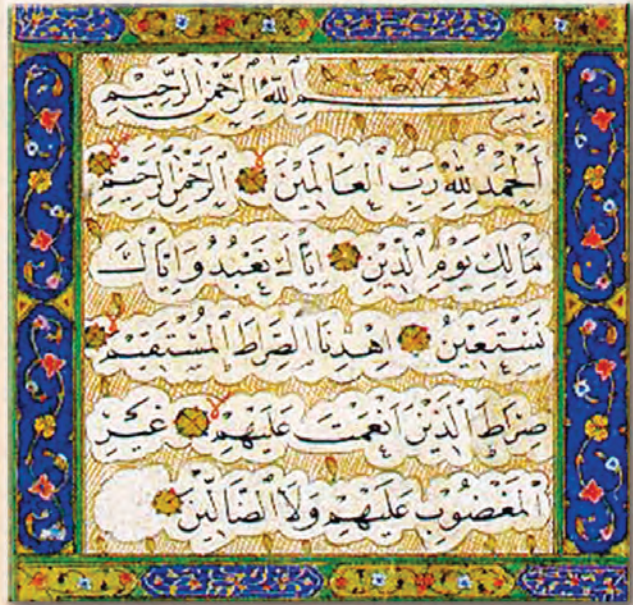 بِسْمِ اللّٰهِ الرَّحْمٰنِ الرَّحِيْمِ
اَلْحَمْدُ لِلّٰهِ رَبِّ الْعَالَمِيْنَ ۝ اَلرَّحْمٰنِ الرَّحِيْمِ ۝
مَالِكِ يَوْمِ الدِّيْنِ ۝ اِيَّاكَ نَعْبُدُ وَاِيَّاكَ
نَسْتَعِيْنُ ۝ اِهْدِنَا الصِّرَاطَ الْمُسْتَقِيْمَ ۝
صِرَاطَ الَّذِيْنَ اَنْعَمْتَ عَلَيْهِمْ ۝ غَيْرِ
الْمَغْضُوْبِ عَلَيْهِمْ وَلَا الضَّالِّيْنَ ۝